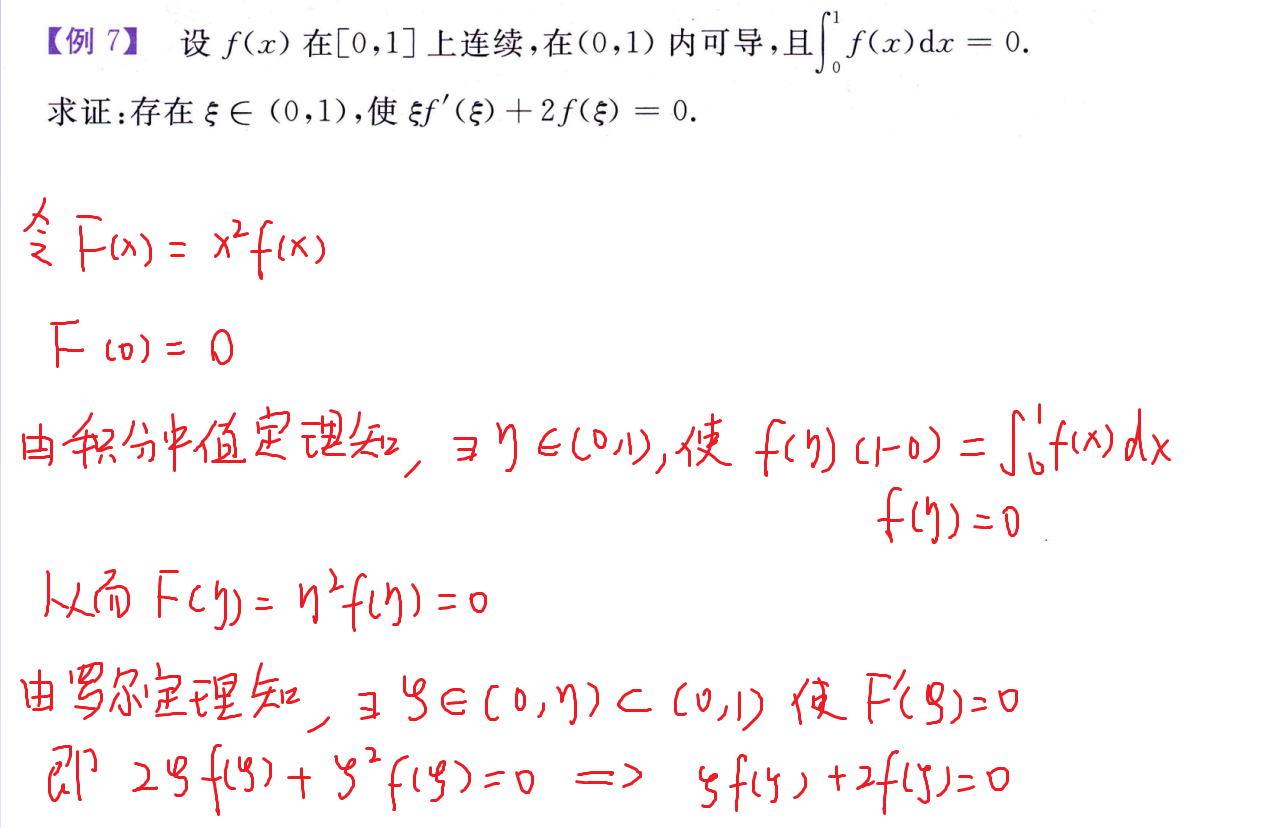 【例 7】 设 f(x) 在[0,1]上连续,在(0,1) 内可导,且∫₀¹ f(x)dx = 0.
求证:存在 ξ ∈ (0,1),使 ξf′(ξ) + 2f(ξ) = 0.
令 F(x) = x²f(x)
F(0) = 0
由积分中值定理知, ∃ η ∈ (0,1), 使 f(η)(1-0) = ∫₀¹ f(x)dx
f(η) = 0
从而 F(η) = η²f(η) = 0
由罗尔定理知, ∃ ξ ∈ (0,η) ⊂ (0,1) 使 F′(ξ) = 0
即 2ξf(ξ) + ξ²f(ξ) = 0 => ξf(ξ) + 2f(ξ) = 0